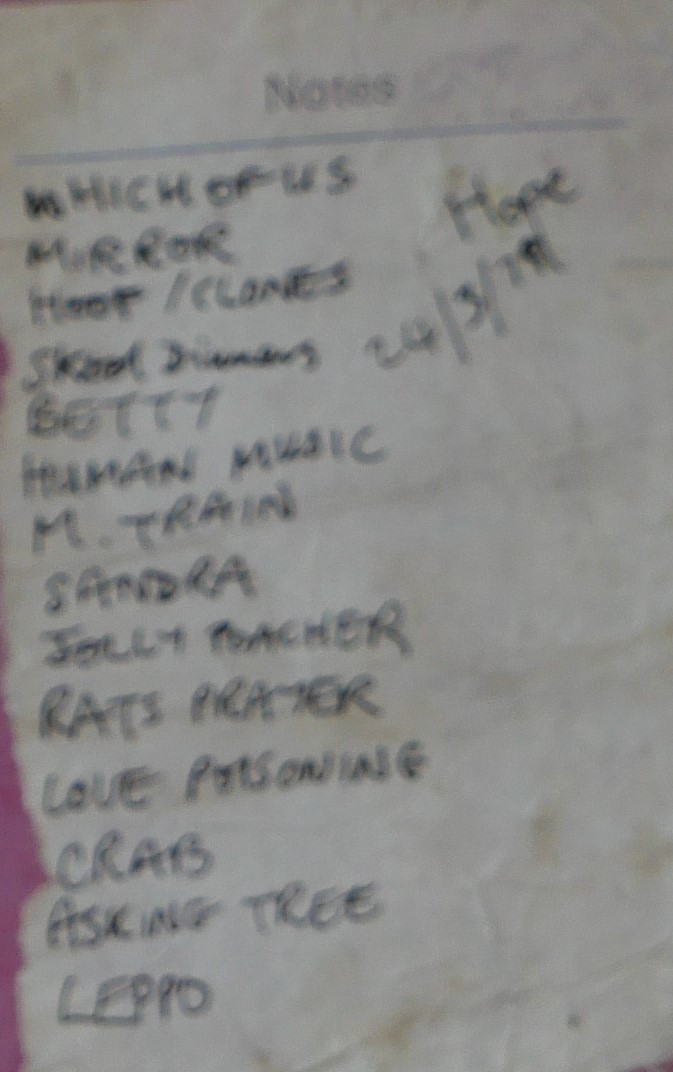 Notes
WHICH OF US
Hope
MIRROR
24/3/79
HOOF / CLONES
Skool Dinners
BETTY
HUMAN MUSIC
M. TRAIN
SANDRA
JOLLY POACHER
RATS PRAYER
LOVE POISONING
CRAB
ASKING TREE
LEPPO